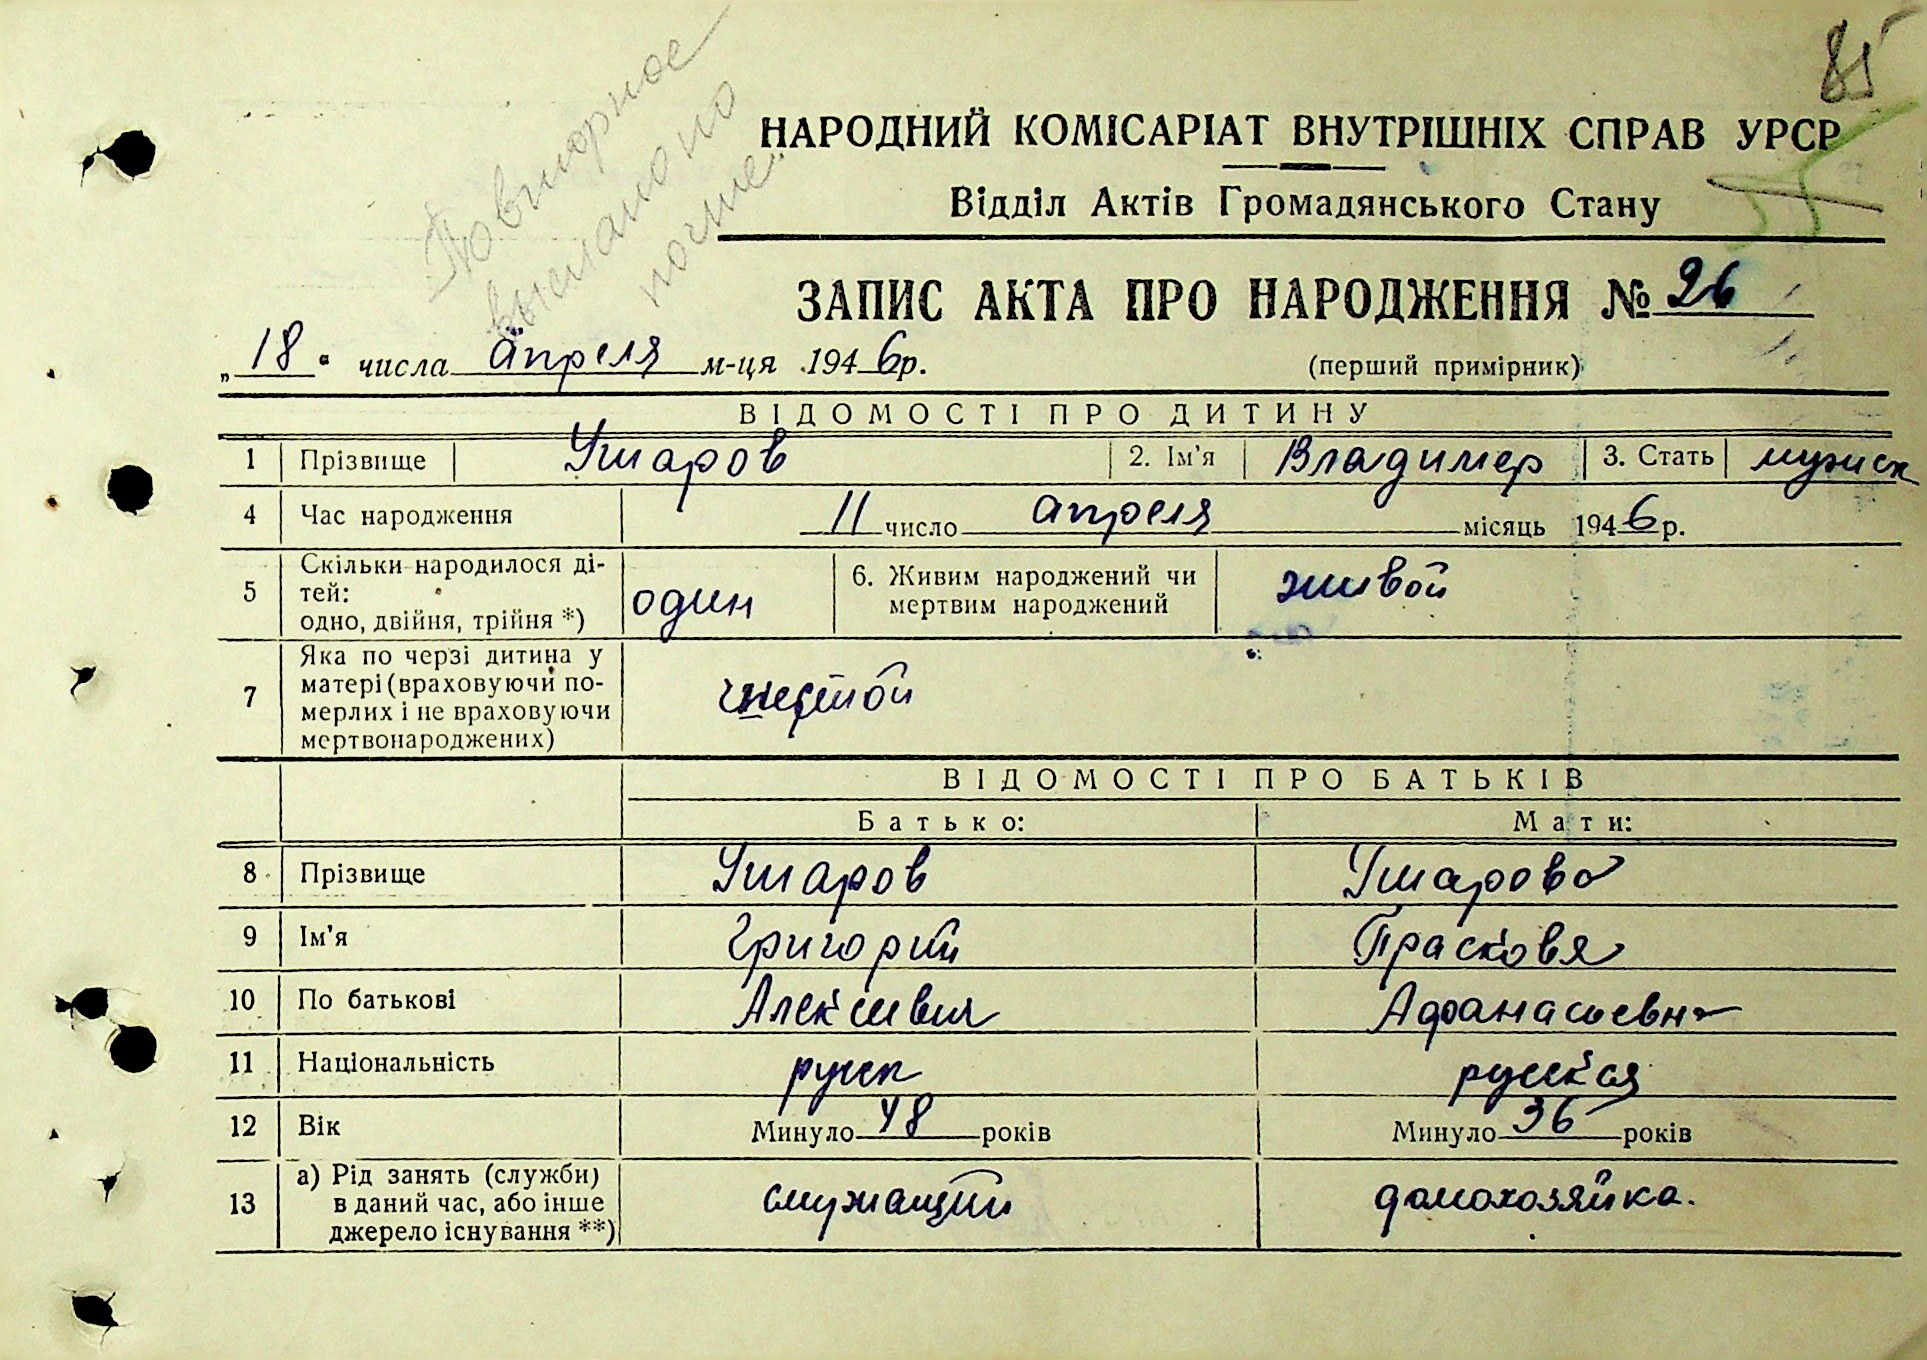 85
Повторное
выслано по
почте.
НАРОДНИЙ КОМІСАРІАТ ВНУТРІШНІХ СПРАВ УРСР
Відділ Актів Громадянського Стану
ЗАПИС АКТА ПРО НАРОДЖЕННЯ № 26
„18“ числа апреля м-ця 1946р.
(перший примірник)
ВІДОМОСТІ ПРО ДИТИНУ
1 Прізвище Умаров 2. Ім'я Владимер 3. Стать мужск
4 Час народження 11 число апреля місяць 1946р.
5 Скільки народилося ді-
тей:
одно, двійня, трійня *) один
6. Живим народжений чи
мертвим народжений живой
7 Яка по черзі дитина у
матері (враховуючи по-
мерлих і не враховуючи
мертвонароджених)
ВІДОМОСТІ ПРО БАТЬКІВ
Батько: Мати:
8 Прізвище Умаров Умарова
9 Ім'я Григорий Прасковя
10 По батькові Алексевич Афанасьевна
11 Національність руск русская
12 Вік Минуло 48 років Минуло 36 років
13 а) Рід занять (служби)
в даний час, або інше
джерело існування **) служащий домохозяйка.